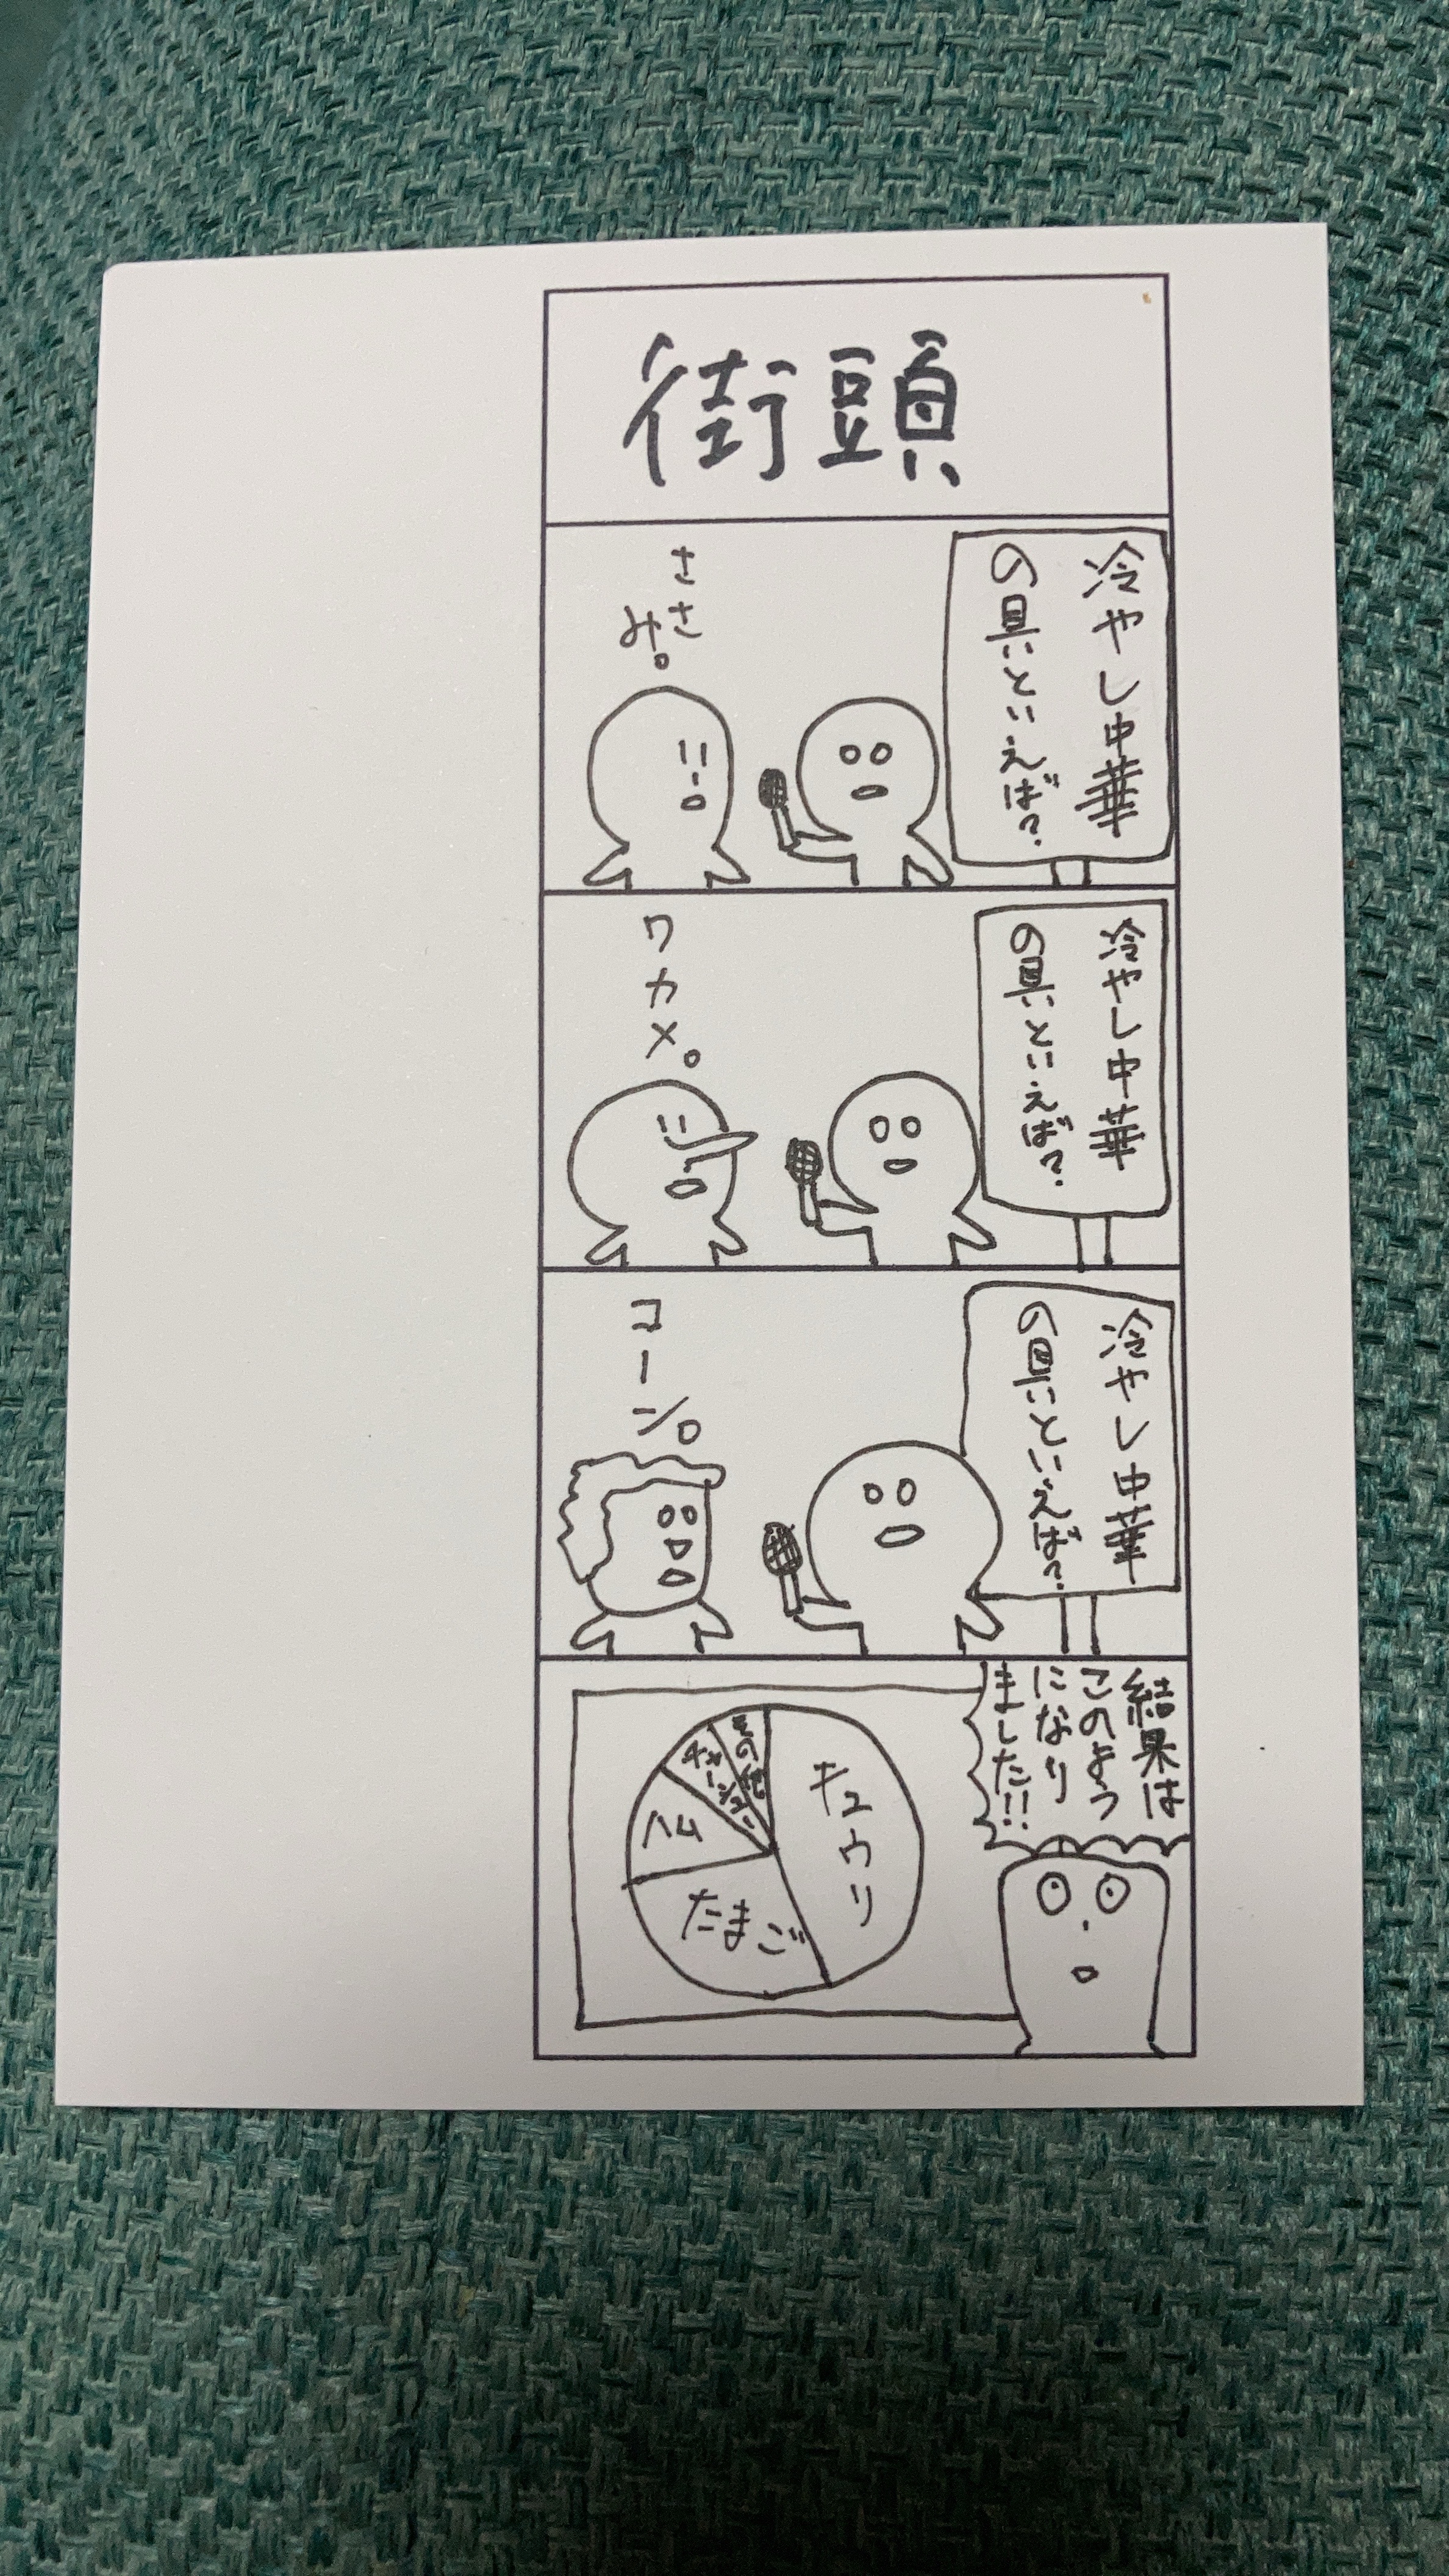 街頭
冷やし中華
の具といえば?
ささ
み。
冷やし中華
の具といえば?
ワカメ。
冷やし中華
の具といえば?
コーン。
結果は
このよう
になり
ました!!
キュウリ
たまご
ハム
チャーシュー
その他